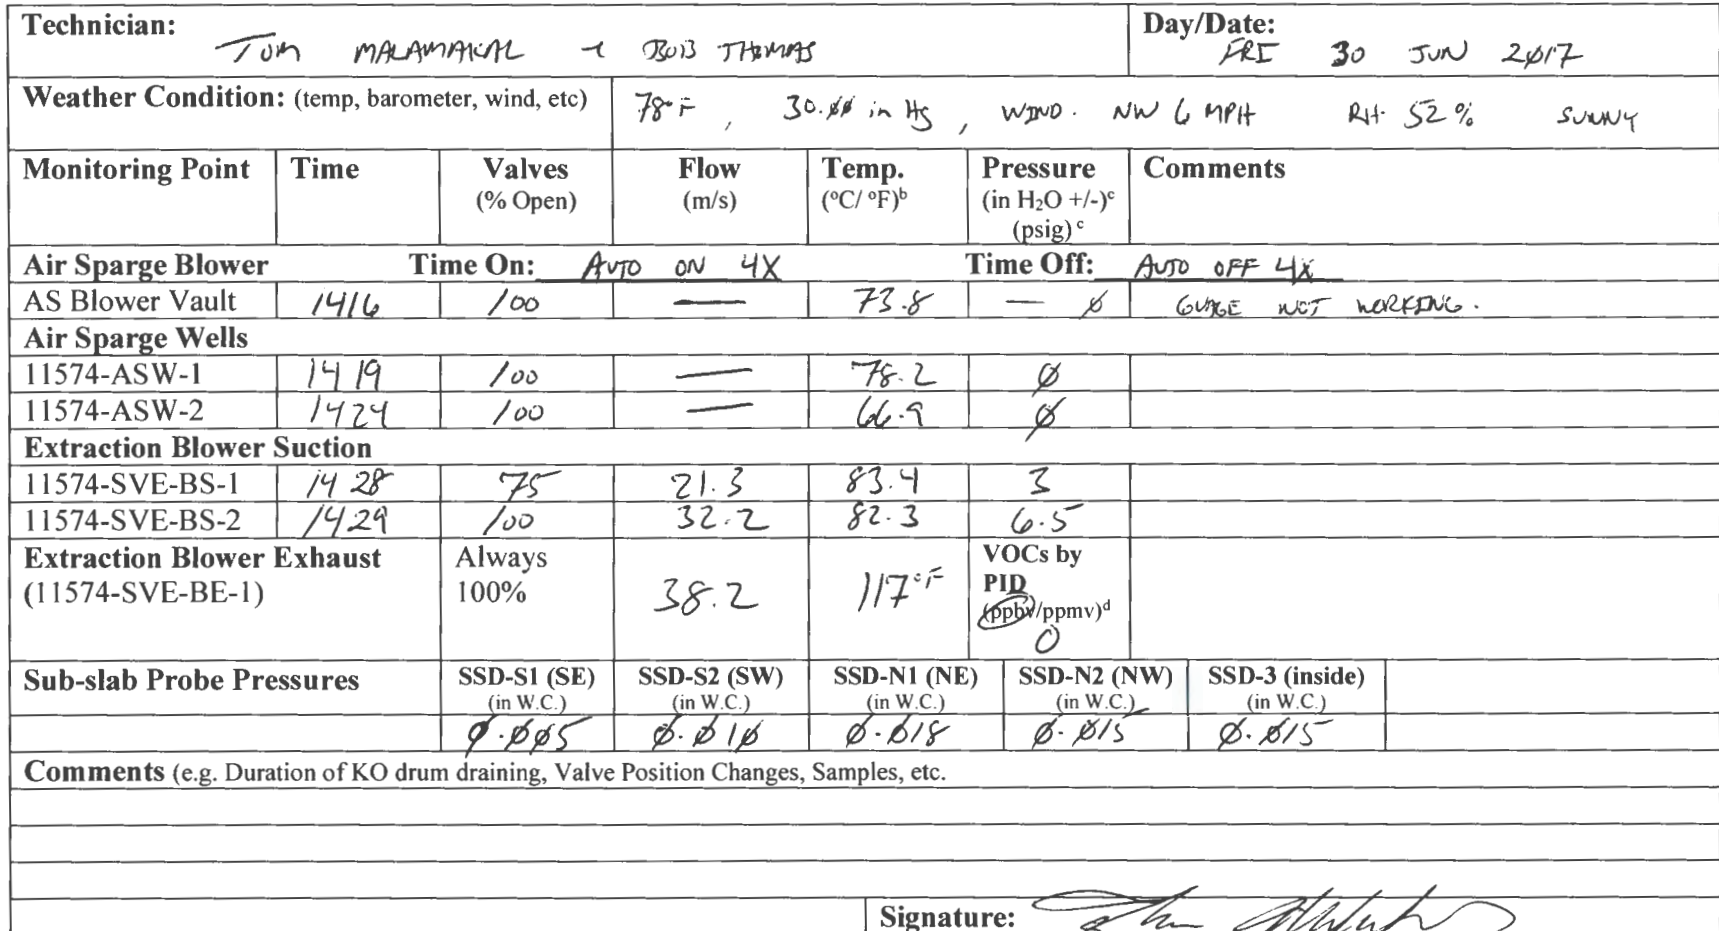 Technician: Day/Date:
TOM MALAMAKAL & BOB THOMAS FRI 30 JUN 2017
Weather Condition: (temp, barometer, wind, etc) 78°F, 30.00 in Hg, WIND. NW 6 MPH RH. 52% SUNNY
Monitoring Point Time Valves Flow Temp. Pressure Comments
(% Open) (m/s) (°C/ °F)ᵇ (in H₂O +/-)ᶜ
(psig) ᶜ
Air Sparge Blower Time On: AUTO ON 4X Time Off: AUTO OFF 4X
AS Blower Vault 1416 100 — 73.8 — 0 GUAGE NOT WORKING.
Air Sparge Wells
11574-ASW-1 1419 100 — 78.2 0
11574-ASW-2 1424 100 — 66.9 0
Extraction Blower Suction
11574-SVE-BS-1 1428 75 21.3 83.4 3
11574-SVE-BS-2 1429 100 32.2 82.3 6.5
Extraction Blower Exhaust Always VOCs by
(11574-SVE-BE-1) 100% 38.2 117°F PID
(ppbv/ppmv)ᵈ
0
Sub-slab Probe Pressures SSD-S1 (SE) SSD-S2 (SW) SSD-N1 (NE) SSD-N2 (NW) SSD-3 (inside)
(in W.C.) (in W.C.) (in W.C.) (in W.C.) (in W.C.)
0.005 0.010 0.018 0.015 0.015
Comments (e.g. Duration of KO drum draining, Valve Position Changes, Samples, etc.
Signature: